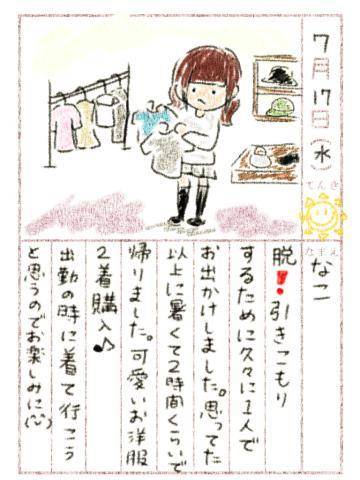 7月17日(水)
てんき
なまえ
なこ
脱!引きこもり
するために久々に1人で
お出かけしました。思ってた
以上に暑くて2時間くらいで
帰りました。可愛いお洋服
2着購入♪
出勤の時に着て行こう
と思うのでお楽しみに(¨)